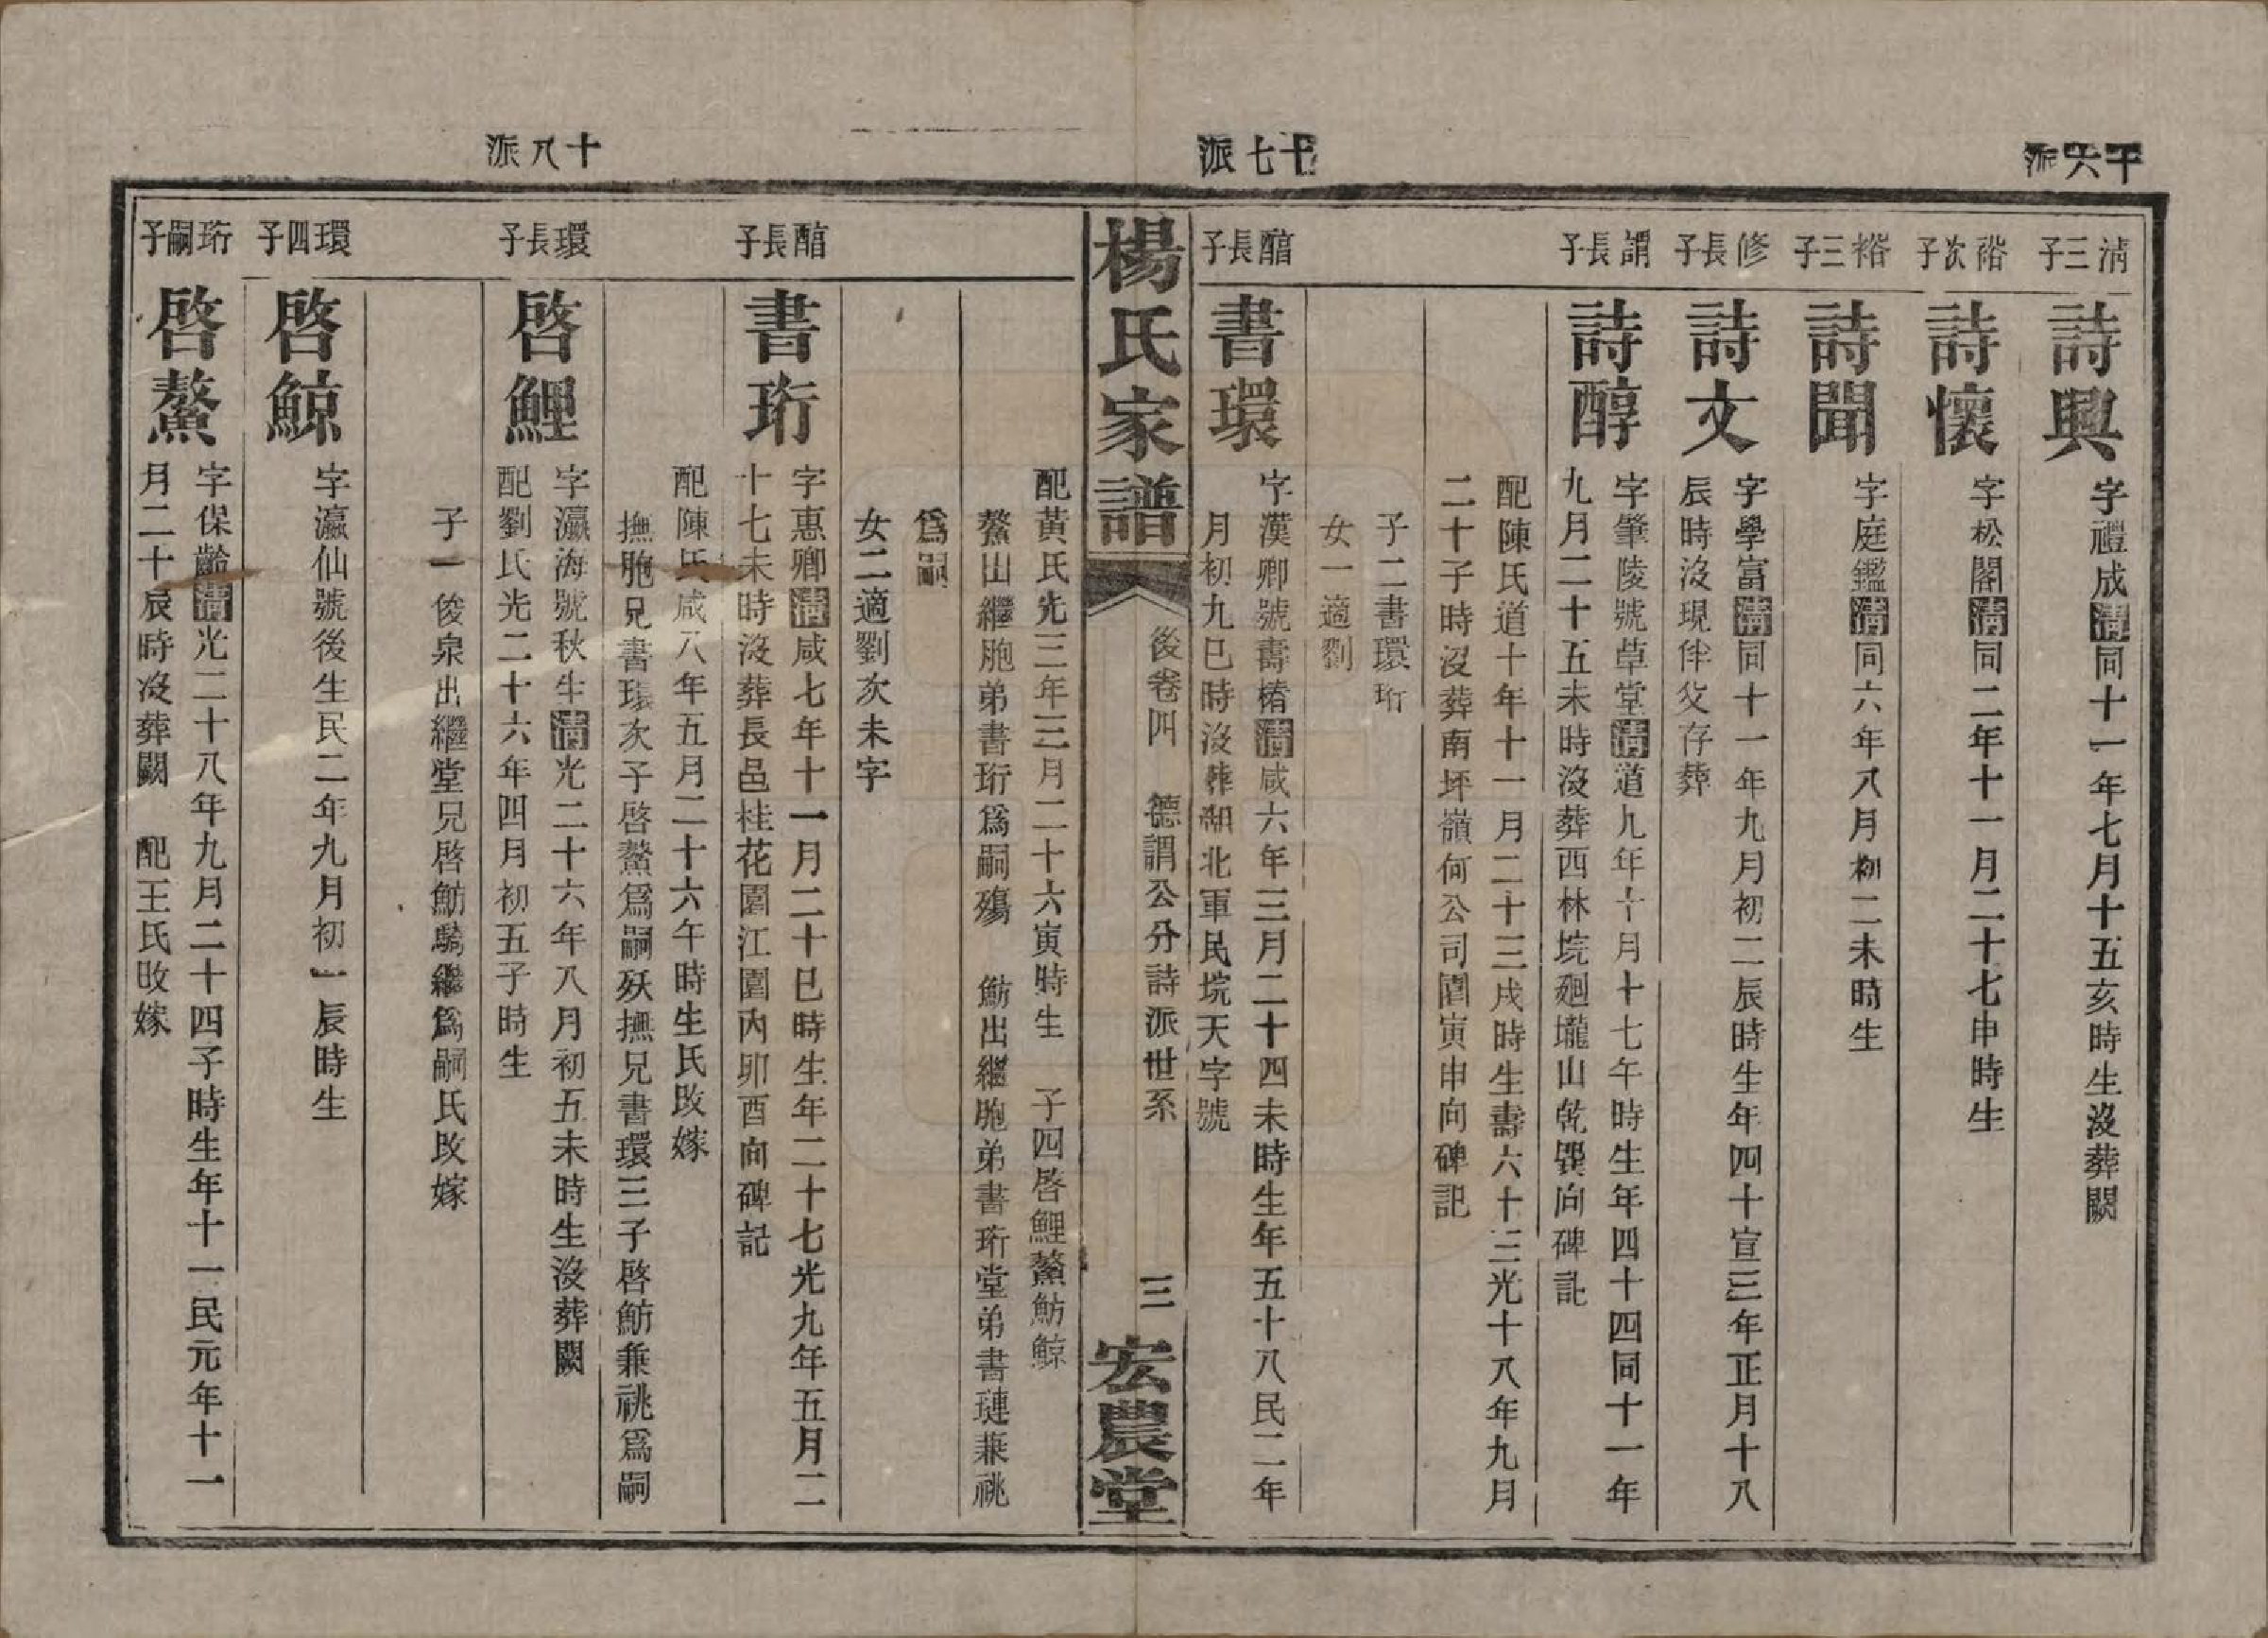 十六派
清三子
詩興
字禮成清同十一年七月十五亥時生沒葬闕
裕次子
詩懷
字松閣清同二年十一月二十七申時生
裕三子
詩聞
字庭鑑清同六年八月初二未時生
修長子
詩文
字學富清同十一年九月初二辰時生年四十宣三年正月十八
辰時沒現伴父存葬
謂長子
詩醇
字肇陵號草堂清道九年十月十七午時生年四十四同十一年
九月二十五未時沒葬西林垸廻壠山乾巽向碑記
配陳氏道十年十一月二十三戌時生壽六十三光十八年九月
二十子時沒葬南坪嶺何公司園寅申向碑記
子二書環珩
女一適劉
十七派
醇長子
書環
字漢卿號壽椿清咸六年三月二十四未時生年五十八民二年
月初九巳時沒葬湖北軍民垸天字號
楊氏家譜
後卷四
德謂公分詩派世系
三
宏農堂
配黃氏先三年三月二十六寅時生 子四啓鯉鰲魴鯨
鰲出繼胞弟書珩爲嗣殤 魴出繼胞弟書珩堂弟書璉兼祧
爲嗣
女二適劉次未字
醇長子
書珩
字惠卿清咸七年十一月二十巳時生年二十七光九年五月二
十七未時沒葬長邑桂花園江園內卯酉向碑記
配陳氏咸八年五月二十六午時生氏改嫁
撫胞兄書環次子啓鰲爲嗣殀撫兄書環三子啓魴兼祧爲嗣
十八派
環長子
啓鯉
字瀛海號秋生清光二十六年八月初五未時生沒葬闕
配劉氏光二十六年四月初五子時生
子一俊泉出繼堂兄啓魴驕繼爲嗣氏改嫁
環四子
啓鯨
字瀛仙號後生民二年九月初一辰時生
珩嗣子
啓鰲
字保齡清光二十八年九月二十四子時生年十一民元年十一
月二十辰時沒葬闕 配王氏改嫁